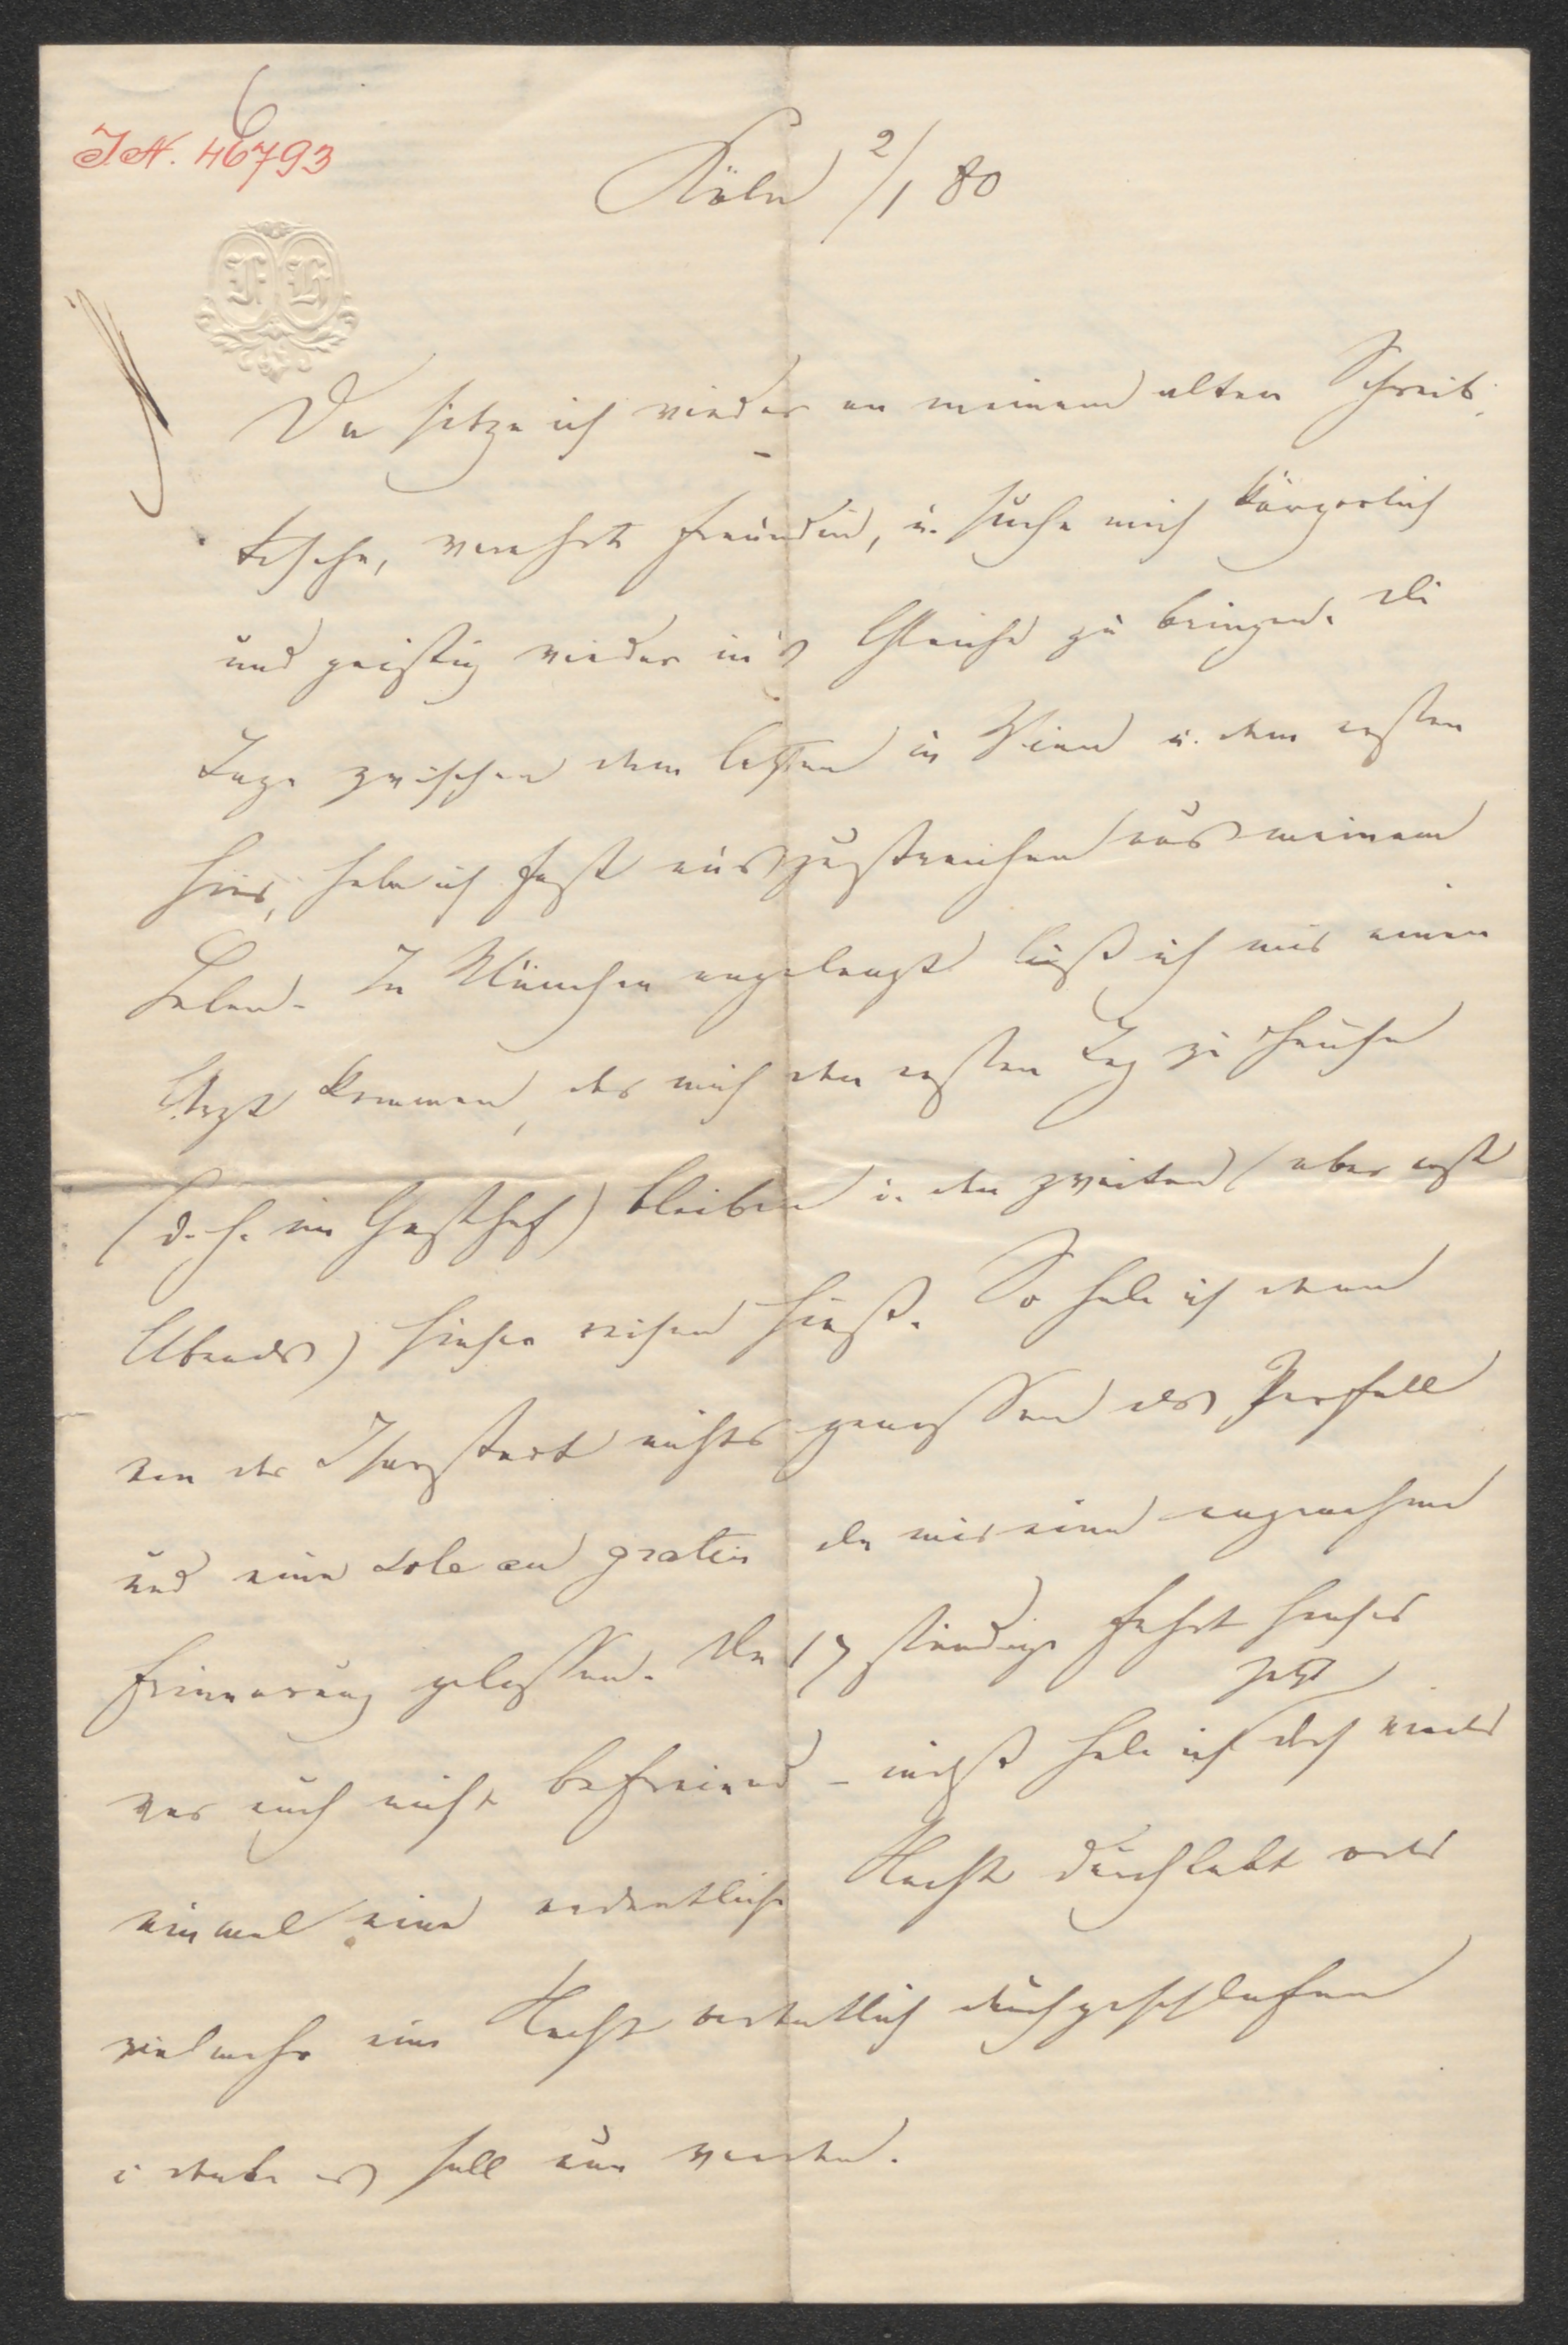 6
I.N. 46793
Köln 2/1 80
F H
Da sitze ich wieder an meinem alten Schreib-
tische, verehrte Freundin, u. suche mich körperlich
und geistig wieder in's Gleiche zu bringen. Die
Tage zwischen dem letzten in Wien u. dem ersten
hier, habe ich fast auszustreichen aus meinem
Leben. In München angelangt ließ ich mir einen
Arzt kommen, der mich den ersten Tag zu Hause
(d. h. im Gasthof) bleiben u. den zweiten (aber erst
Abends) hieher reisen hieß. So habe ich denn
von der Isarstadt nichts genossen als Perfall
und eine Sole au gratin die mir eine angenehme
Erinnerung gelassen. Die 17 stündige Fahrt hieher
war auch nicht – indeß habe ich jetzt doch wieder
einmal eine ordentliche Nacht durchlebt oder
vielmehr eine Nacht ordentlich durchgeschlafen
u denke es soll nun werden.